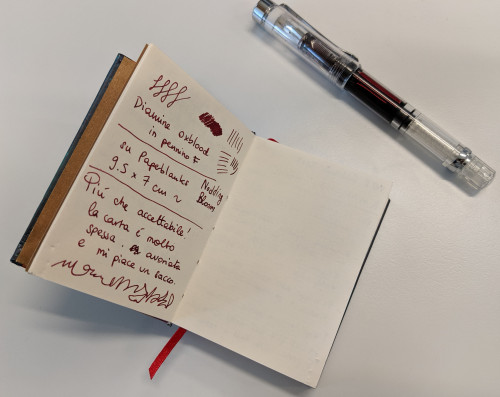 Diamine oxblood
in pennino F
su Paperblanks
9.5 x 7 cm ~
Nodding
Bloom
Più che accettabile!
la carta è molto
spessa. avoriata
e mi piace un sacco.